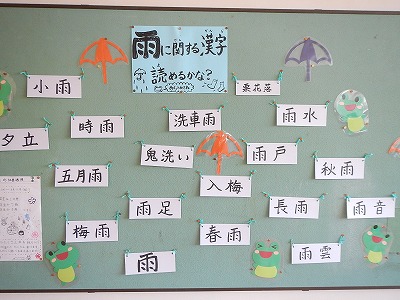 雨に関する漢字
読めるかな?
小雨
栗花落
時雨
洗車雨
雨水
夕立
鬼洗い
雨戸
秋雨
五月雨
入梅
雨足
長雨
雨音
梅雨
春雨
雨
雨雲